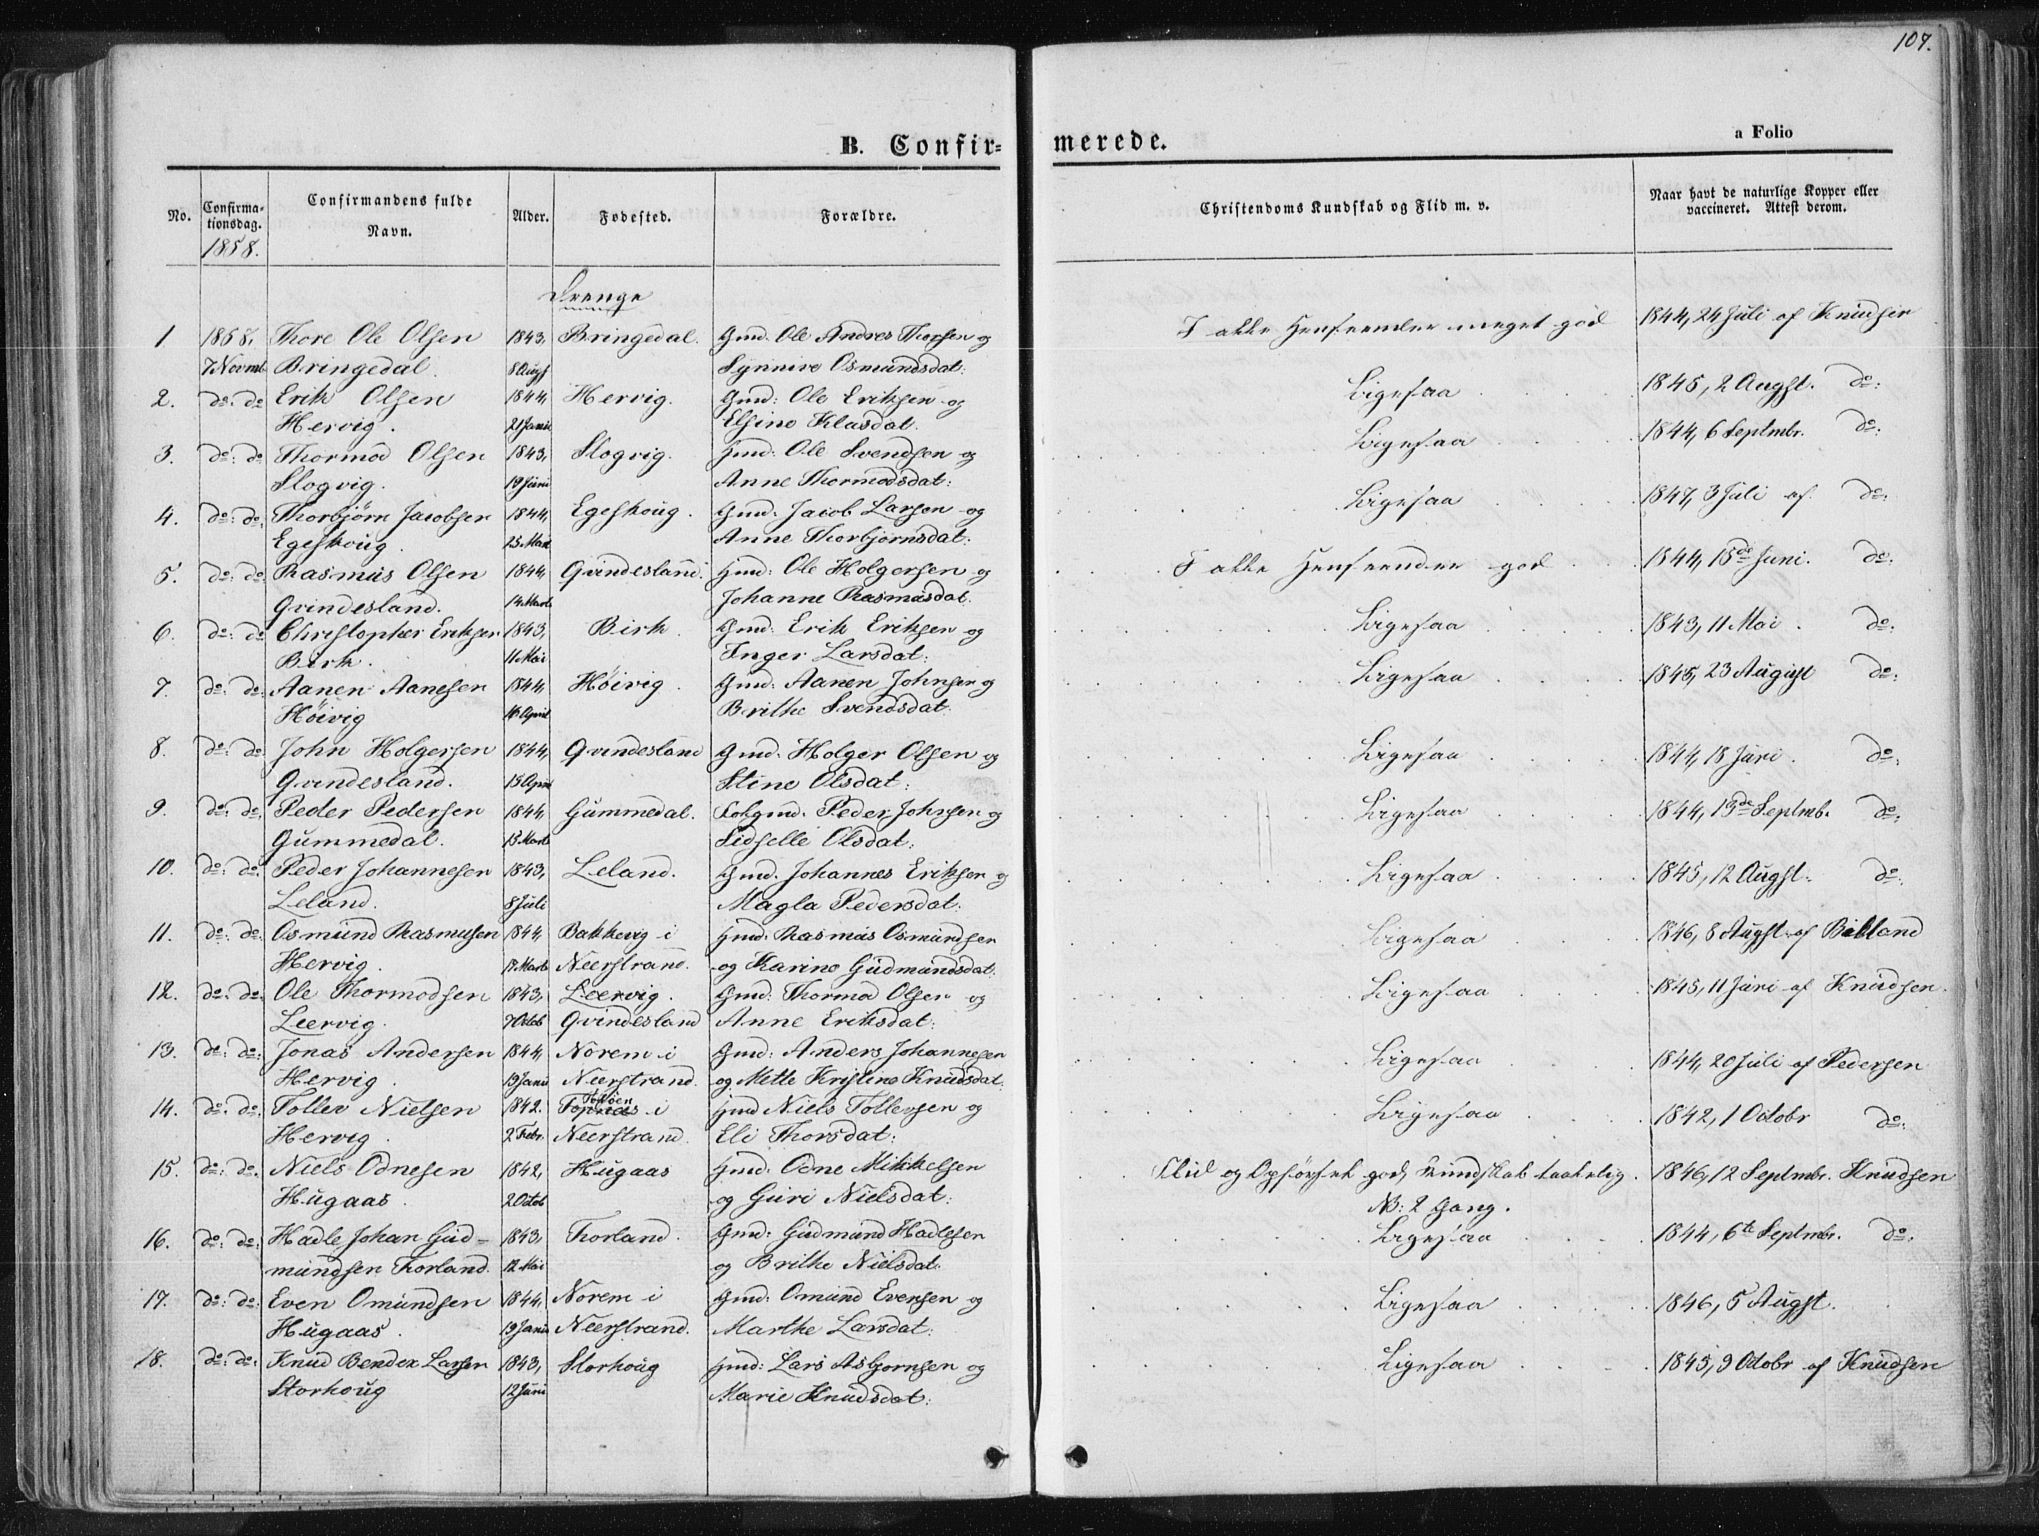 107.
B. Confir-
merede.
a Folio
No.
Confirma-
tionsdag.
1858.
Confirmandens fulde
Navn.
Alder.
Fødested.
Forældre.
Christendoms Kundskab og Flid m. v.
Naar havt de naturlige Kopper eller
vaccineret. Attest derom.
Drenge
1 1858, Thore Ole Olsen 1843, Bringedal. Gmd. Ole Andres Thorsen og I alle Henseender meget god 1844, 24 Juli af Knudsen
7 Novmb Bringedal. 8 Augst Synnive Osmundsdat:
2. do: do Erik Olsen 1844, Hervig. Gmd: Ole Eriksen og Ligesaa 1845, 2 Augst. do:
Hervig. 21 Janu Elsine Klasdat.
3. do: do Thormod Olsen 1843, Slogvig. Hmd: Ole Svendsen og Ligesaa 1844, 6 Septmbr. do:
Slogvig. 19 Juni Anne Thormodsdat:
4. do: do: Thorbjørn Jacobsen 1844, Egeskoug. Gmd. Jacob Larsen og Ligesaa 1847, 3 Juli af do:
Egeskoug. 23 Marts Anne Thorbjørnsdat:
5. do: do: Rasmus Olsen 1844, Qvindesland. Hmd: Ole Holgersen og I alle Henseender god 1844, 15de Juni. do:
Qvindesland. 14 Marts Johanne Rasmusdat.
6. do: do Christopher Eriksen 1843, Birk. Gmd: Erik Eriksen og Ligesaa 1843, 11 Mai. do:
Birk. 11 Mai Inger Larsdat:
7. do: do: Aanen Aanesen 1844, Høivig. Gmd: Aanen Johnsen og Ligesaa 1845, 23 August do:
Høivig 16 April Brithe Svendsdat.
8. do: do: John Holgersen 1844, Qvindesland Gmd: Holger Olsen og Ligesaa 1844, 18 Juni. do:
Qvindesland. 13 Apr Stine Olsdat:
9. do: do: Peder Pedersen 1844, Gummedal. Gmd. Peder Johnsen og Ligesaa 1844, 13de Septmb. do:
Gummedal. 13 Marts Sidselle Olsdat:
10. do: do: Peder Johannesen 1843, Leland. Gmd. Johannes Eriksen og Ligesaa 1845, 12 Augst. do:
Leland. 8 Juli Magla Pedersdat:
11. do: do: Osmund Rasmusen 1844, Bakkevig i Hmd: Rasmus Osmundsen Ligesaa 1846, 8 Augst af
Hervig. Marts Neerstrand. og Karine Gudmundsdat:
12. do: do: Ole Thormodsen 1843, Leervig. Gmd: Thormod Olsen og Ligesaa 1845, 11 Juni af Knudsen.
Leervig. 7 Octob Qvindesland Anne Eriksdat:
13. do: do: Jonas Andersen 1844, Norem i Gmd: Anders Johannesen Ligesaa 1844, 20 Juli af Pedersen
Hervig. 19 Janu Neerstrand. og Mette Kristine Knudsdat.
14. do. do: Tollev Nielsen 1842. i Hmd Niels Tollevsen og Ligesaa 1842, 1 Octobr do:
Hervig. 2 Febr. Neerstrand. Eli Thorsdat:
15. do: do: Niels Odnesen 1842, Hugaas Hmd: Odne Mikkelsen Flid og Opførsel god, Kundskab taalelig. 1846, 12 Septmbr. Knudsen
Hugaas. 2 Octob og Guri Nielsdat: NB: 2 Gang.
16. do: do: Hadle Johan Gud- 1843, Torland. Gmd: Gudmund Hadlesen Ligesaa 1844, 6te Septmbr. do:
mundsen Torland. 12 Mai og Brithe Nielsdat:
17. do: do: Even Omundsen 1844, Norem i Gmd: Omund Evensen og Ligesaa 1846, 5 Augst.
Hugaas. 19 Janu Neerstrand. Marthe Larsdat:
18. do: do. Knud Bendix Larsen 1843, Storhoug Hmd: Lars Asbjornsen og Ligesaa 1845, 9 Octobr af Knudsen
Storhoug 12 Juni Marie Knudsdat: